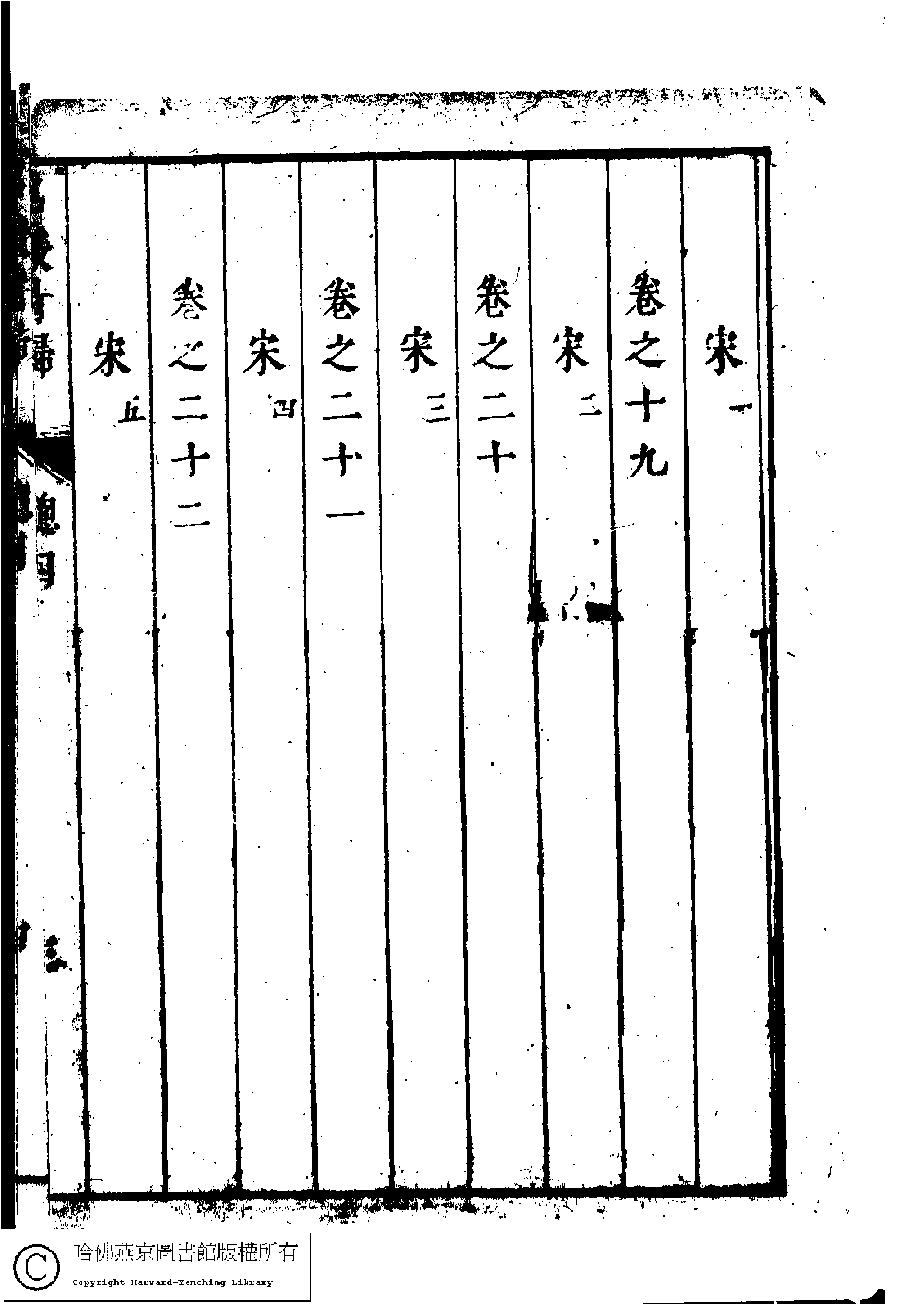 宋一
卷之十九
宋二
卷之二十
宋三
卷之二十一
宋四
卷之二十二
宋五
總目
哈佛燕京圖書館版權所有
Copyright Harvard-Yenching Library